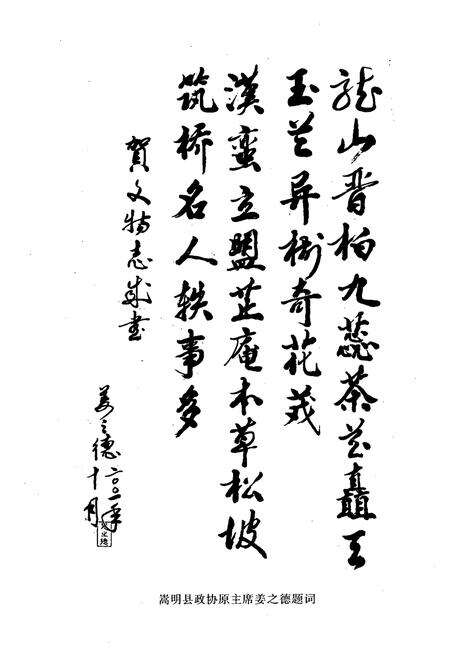 龙山晋柏九蕊茶花矗天
玉兰异树奇花茂
漢蛮立盟芷庵本草松坡
筑桥名人轶事多
贺文物志成书
姜之德
十月
嵩明县政协原主席姜之德题词